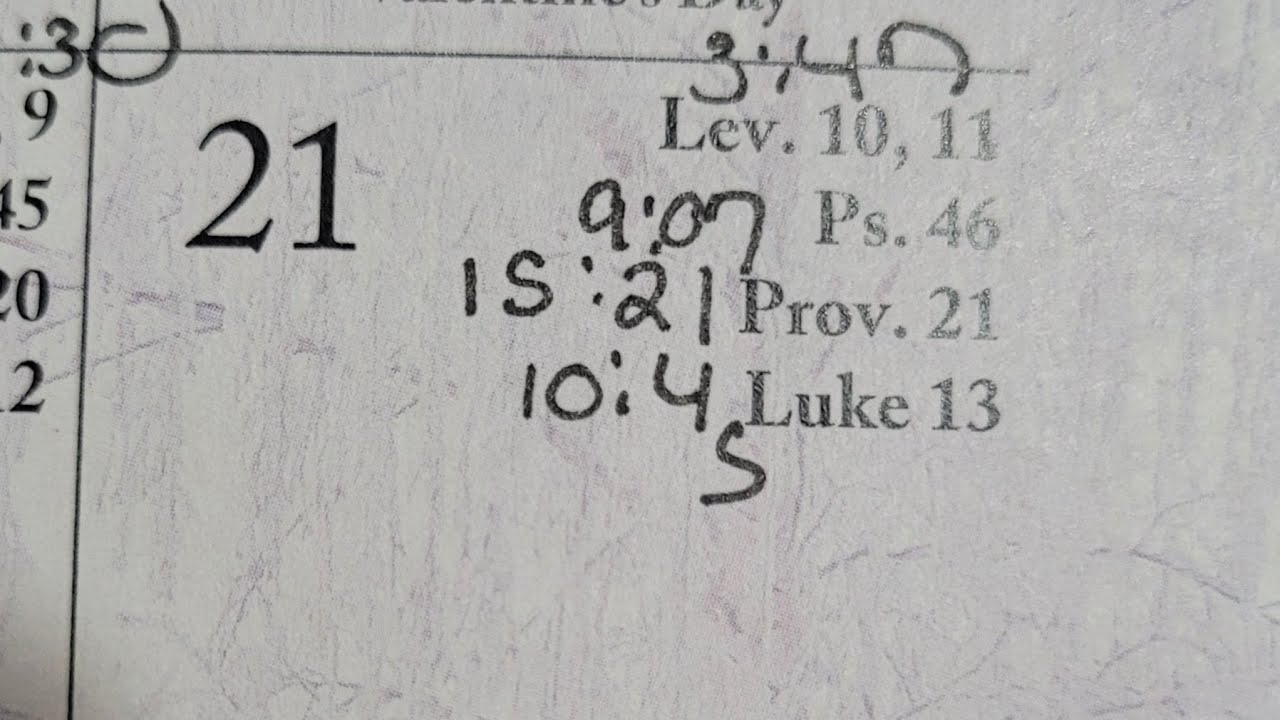 Valentine's Day
:30
3:47
9
21
Lev. 10, 11
45
9:07 Ps. 46
20
15:21 Prov. 21
12
10:45 Luke 13